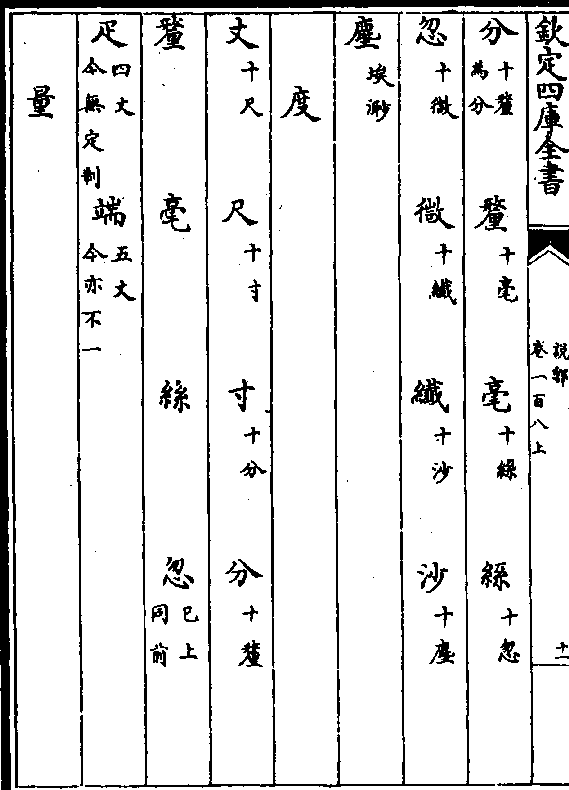 欽定四庫全書
說郛
卷一百八上
十一
分十釐為分 釐十毫 毫十絲 絲十忽
忽十微 微十纖 纖十沙 沙十塵
塵埃渺
度
丈十尺 尺十寸 寸十分 分十釐
釐 毫 絲 忽已上同前
疋四丈今無定制 端五丈今亦不一
量